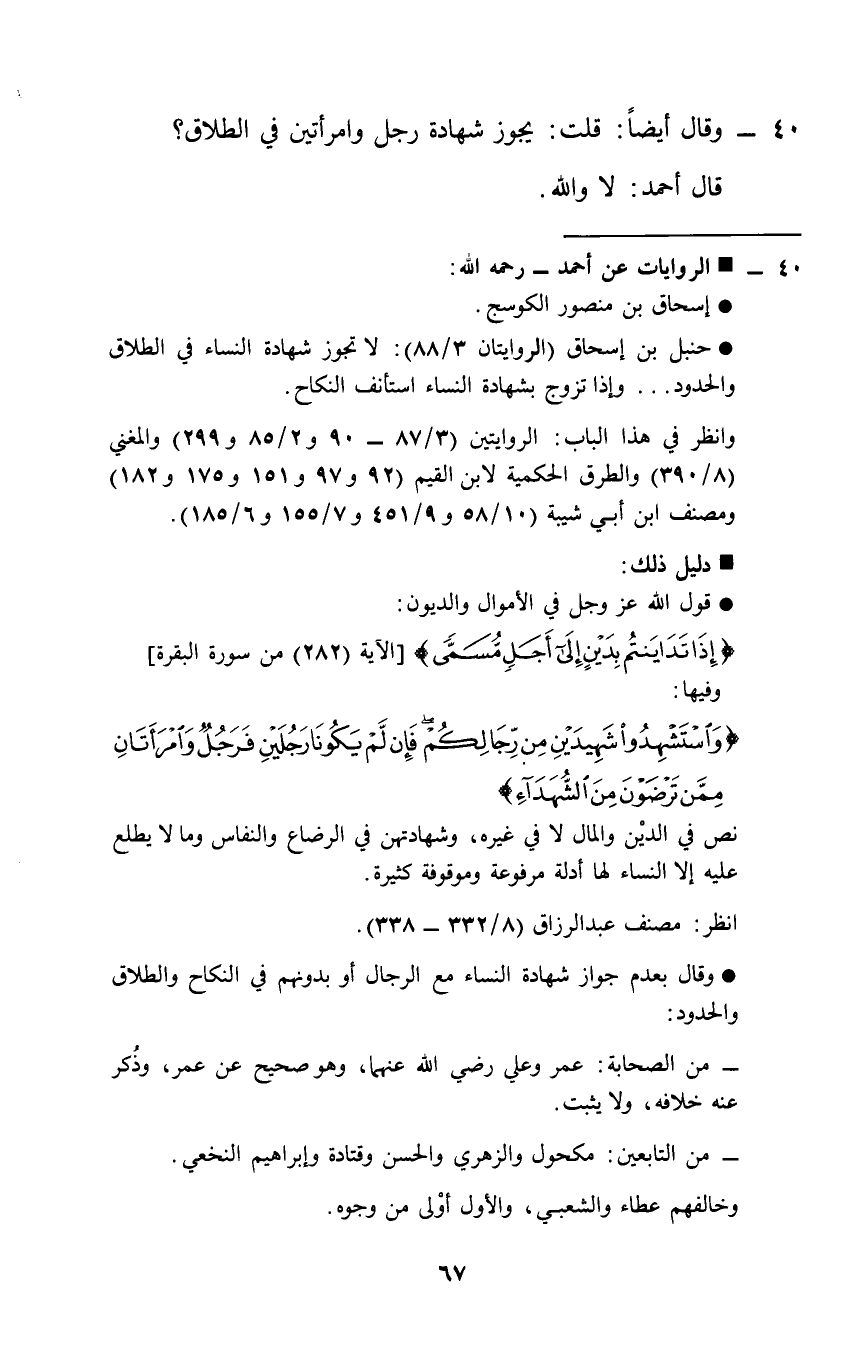 ٤٠ ــ وقال أيضاً: قلت: يجوز شهادة رجل وامرأتين في الطلاق؟
قال أحمد: لا والله.
٤٠ ــ ■ الروايات عن أحمد ــ رحمه الله:
● إسحاق بن منصور الكوسج.
● حنبل بن إسحاق (الروايتان ٨٨/٣): لا تجوز شهادة النساء في الطلاق
والحدود... وإذا تزوج بشهادة النساء استأنف النكاح.
وانظر في هذا الباب: الروايتين (٨٧/٣ ــ ٩٠ و٨٥/٢ و٢٩٩) والمغني
(٣٩٠/٨) والطرق الحكمية لابن القيم (٩٢ و٩٧ و١٥١ و١٧٥ و١٨٢)
ومصنف ابن أبـي شيبة (٥٨/١٠ و٤٥١/٩ و١٥٥/٧ و١٨٥/٦).
■ دليل ذلك:
● قول الله عز وجل في الأموال والديون:
﴿إِذَا تَدَايَنتُم بِدَيْنٍ إِلَىٰٓ أَجَلٍ مُّسَمًّى﴾ [الآية (٢٨٢) من سورة البقرة]
وفيها:
﴿وَٱسْتَشْهِدُوا۟ شَهِيدَيْنِ مِن رِّجَالِكُمْ ۖ فَإِن لَّمْ يَكُونَا رَجُلَيْنِ فَرَجُلٌ وَٱمْرَأَتَانِ
مِمَّن تَرْضَوْنَ مِنَ ٱلشُّهَدَآءِ﴾
نص في الديْن والمال لا في غيره، وشهادتهن في الرضاع والنفاس وما لا يطلع
عليه إلا النساء لها أدلة مرفوعة وموقوفة كثيرة.
انظر: مصنف عبدالرزاق (٣٣٢/٨ ــ ٣٣٨).
● وقال بعدم جواز شهادة النساء مع الرجال أو بدونهم في النكاح والطلاق
والحدود:
ــ من الصحابة: عمر وعلي رضي الله عنهما، وهو صحيح عن عمر، وذُكر
عنه خلافه، ولا يثبت.
ــ من التابعين: مكحول والزهري والحسن وقتادة وإبراهيم النخعي.
وخالفهم عطاء والشعبـي، والأول أوْلى من وجوه.
٦٧